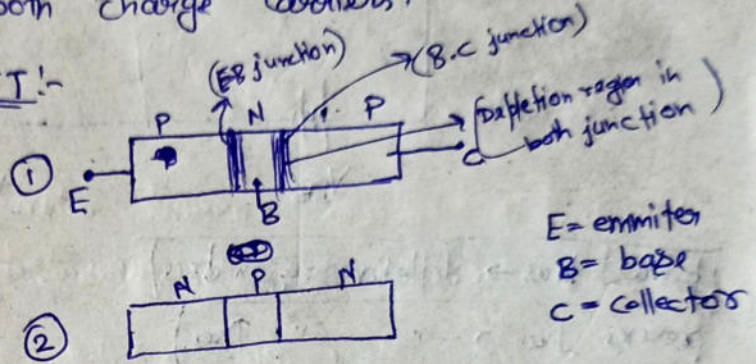 both charge carriers.
T:-
(EB junction)
(B.C junction)
P N P
(Depletion region in
both junction)
①
E
C
B
E = emmiter
B = base
C = collector
N P N
②